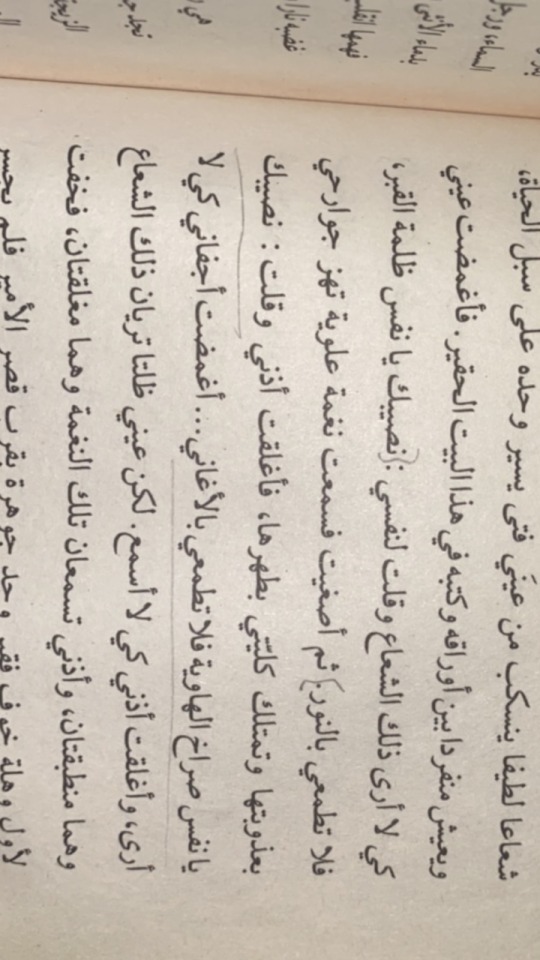 شعاعا لطيفا ينسكب من عينَي فتى يسير وحده على سبل الحياة،
ويعيش منفردا بين أوراقه وكتبه في هذا البيت الحقير. فأغمضت عيني
كي لا أرى ذلك الشعاع وقلت لنفسي: {نصيبك يا نفس ظلمة القبر،
فلا تطمعي بالنور} ثم أصغيت فسمعت نغمة علوية تهز جوارحي
بعذوبتها وتمتلك كلّيّتي بطهرها، فأغلقت أذني وقلت: نصيبك
يا نفس صراخ الهاوية فلا تطمعي بالأغاني... أغمضت أجفاني كي لا
أرى، وأغلقت أذني كي لا أسمع. لكن عيني ظلتا تريان ذلك الشعاع
وهما منطبقتان، وأذني تسمعان تلك النغمة وهما مغلقتان، فخفت
لأول وهلة خوف فقير وجد جوهرة بقرب قصر الأمير فلم يجسر